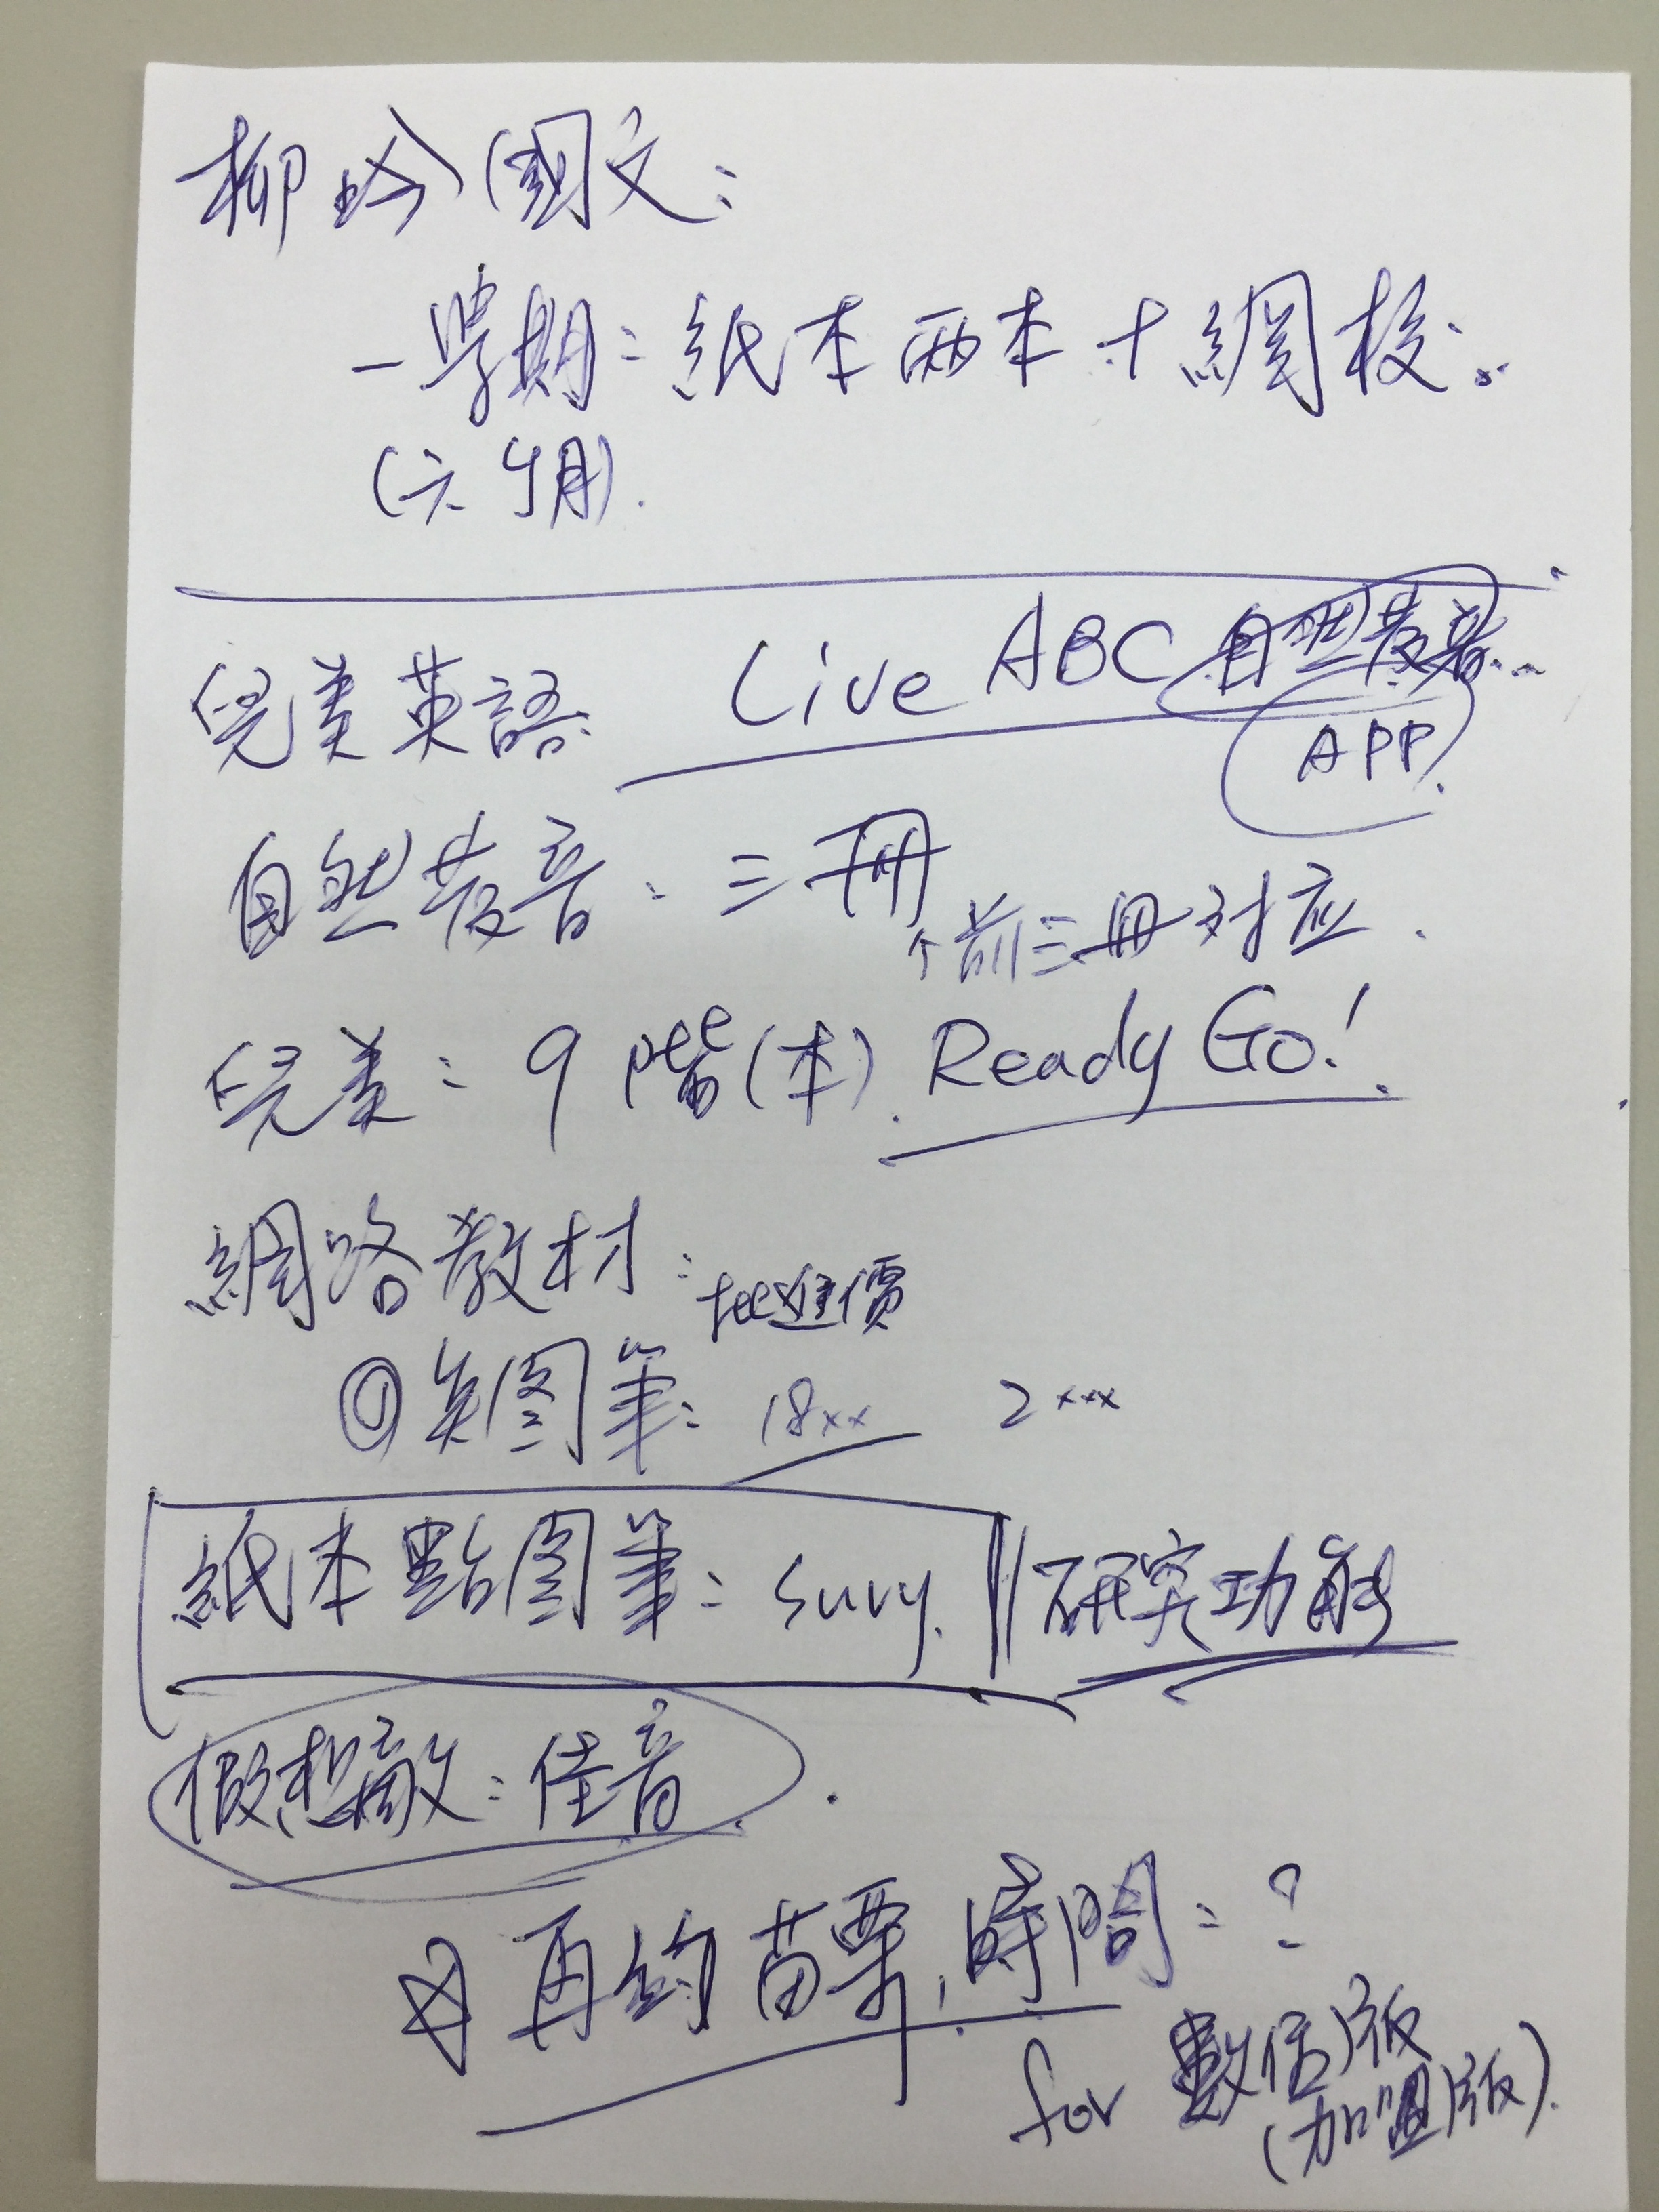 柳 (國文:
一學期: 紙本兩本+網校.
(六個月).
兒美英語 Live ABC 自然發音..
APP
自然發音: 三冊
↑前三冊对应.
兒美: 9階(本). Ready Go!
網路教材: 批進價
◎点图筆: 18xx 2xxx
紙本點图筆: 研究功能
佳音.
再約苗栗, 時間:?
for 數位版
(加盟版).